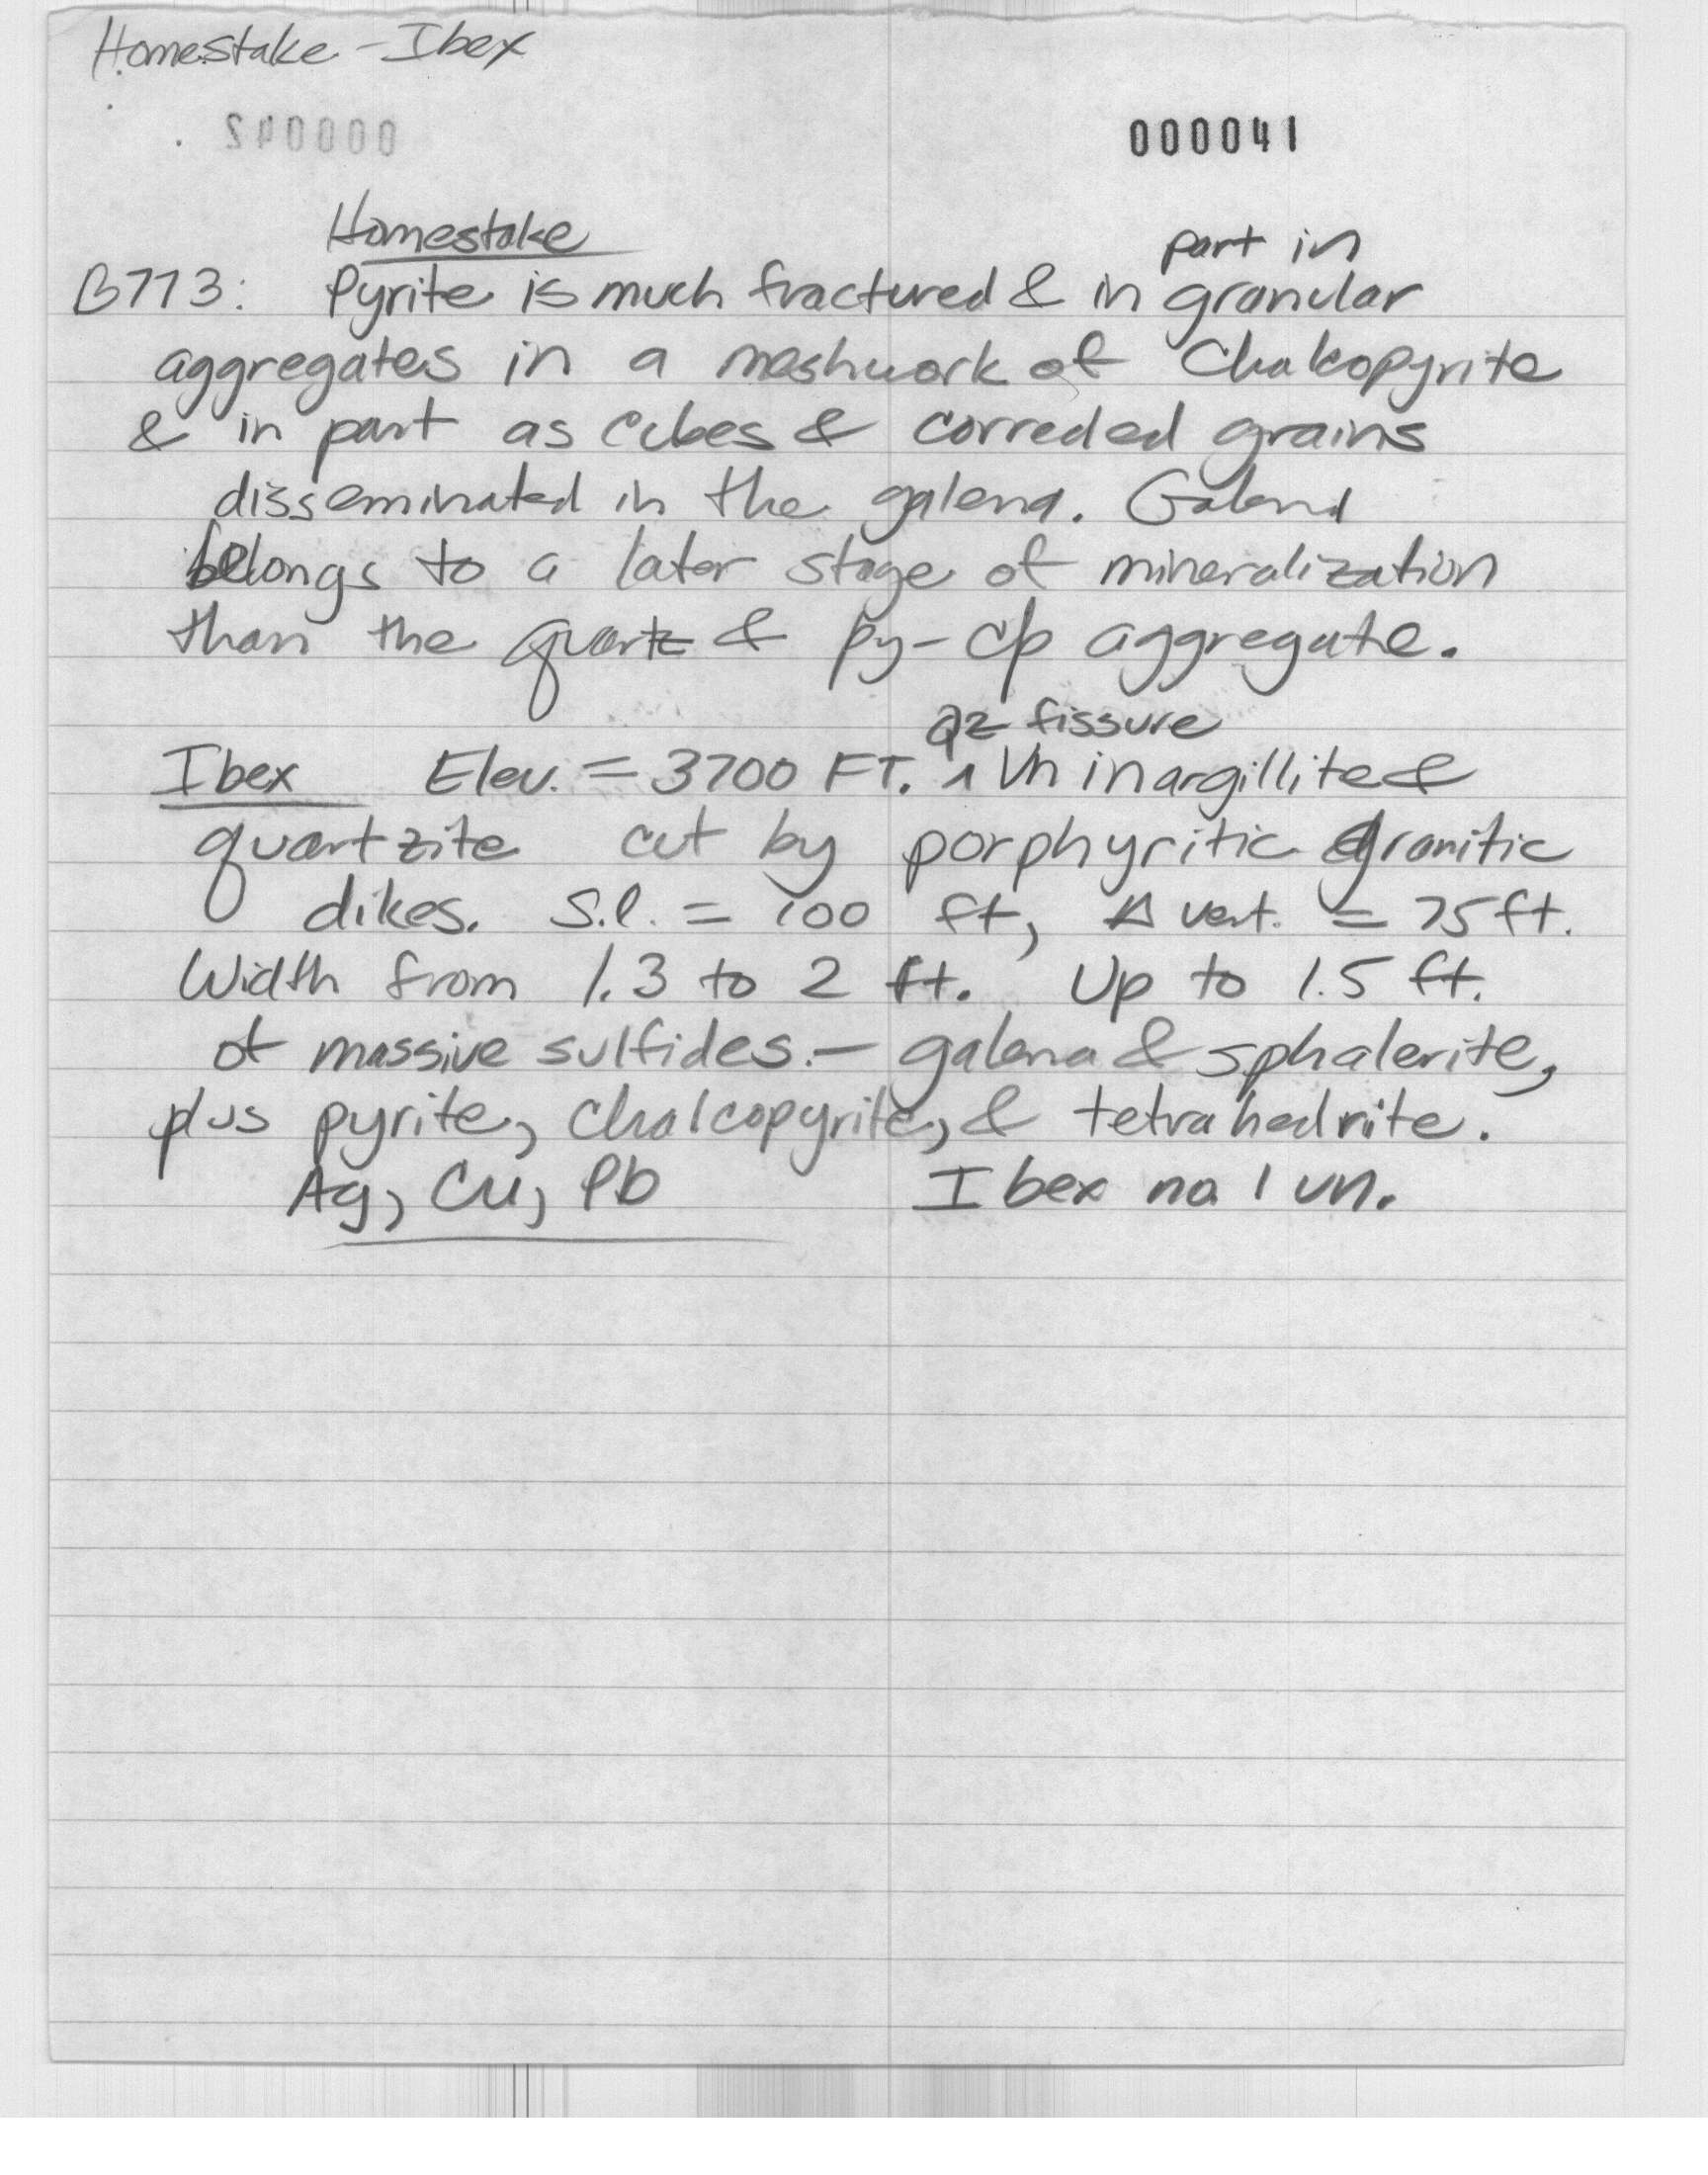 Homestake - Ibex
000042
000041
Homestake
part in
B773: Pyrite is much fractured & in granular
aggregates in a meshwork of Chalcopyrite
& in part as cubes & correded grains
disseminated in the galena. Galena
belongs to a later stage of mineralization
than the quartz & py-cp aggregate.
Qz fissure
Ibex Elev. = 3700 FT. ^ Vn in argillite &
quartzite cut by porphyritic granitic
dikes. S.l. = 100 ft, Δ vert. = 75 ft.
Width from 1.3 to 2 ft. Up to 1.5 ft.
of massive sulfides. - galena & sphalerite,
plus pyrite, chalcopyrite, & tetrahedrite.
Ag, Cu, Pb Ibex no 1 vn.